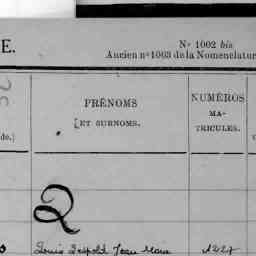 E.
N° 1002 bis
Ancien n° 1003 de la Nomenclatur
PRÉNOMS
ET SURNOMS.
NUMÉROS
MA-
TRICULES.
de.)
Q
Louis Léopold Jean Marie 1227